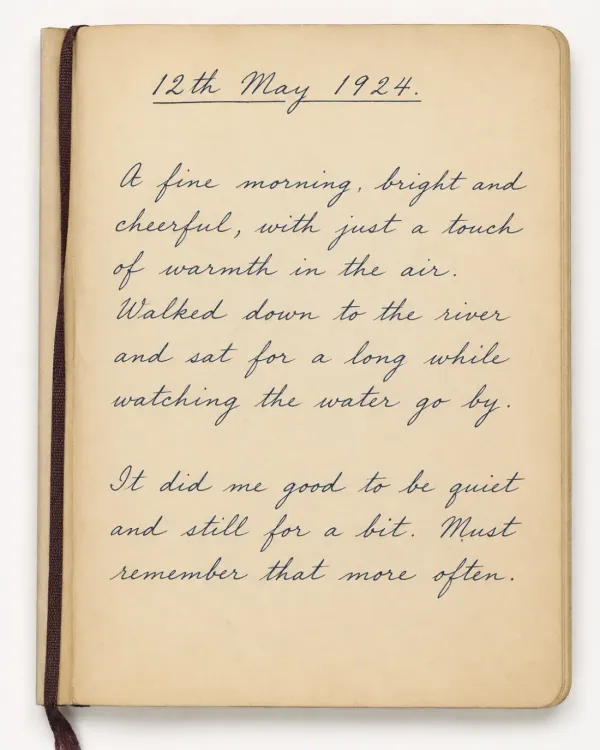 12th May 1924.
A fine morning, bright and
cheerful, with just a touch
of warmth in the air.
Walked down to the river
and sat for a long while
watching the water go by.
It did me good to be quiet
and still for a bit. Must
remember that more often.